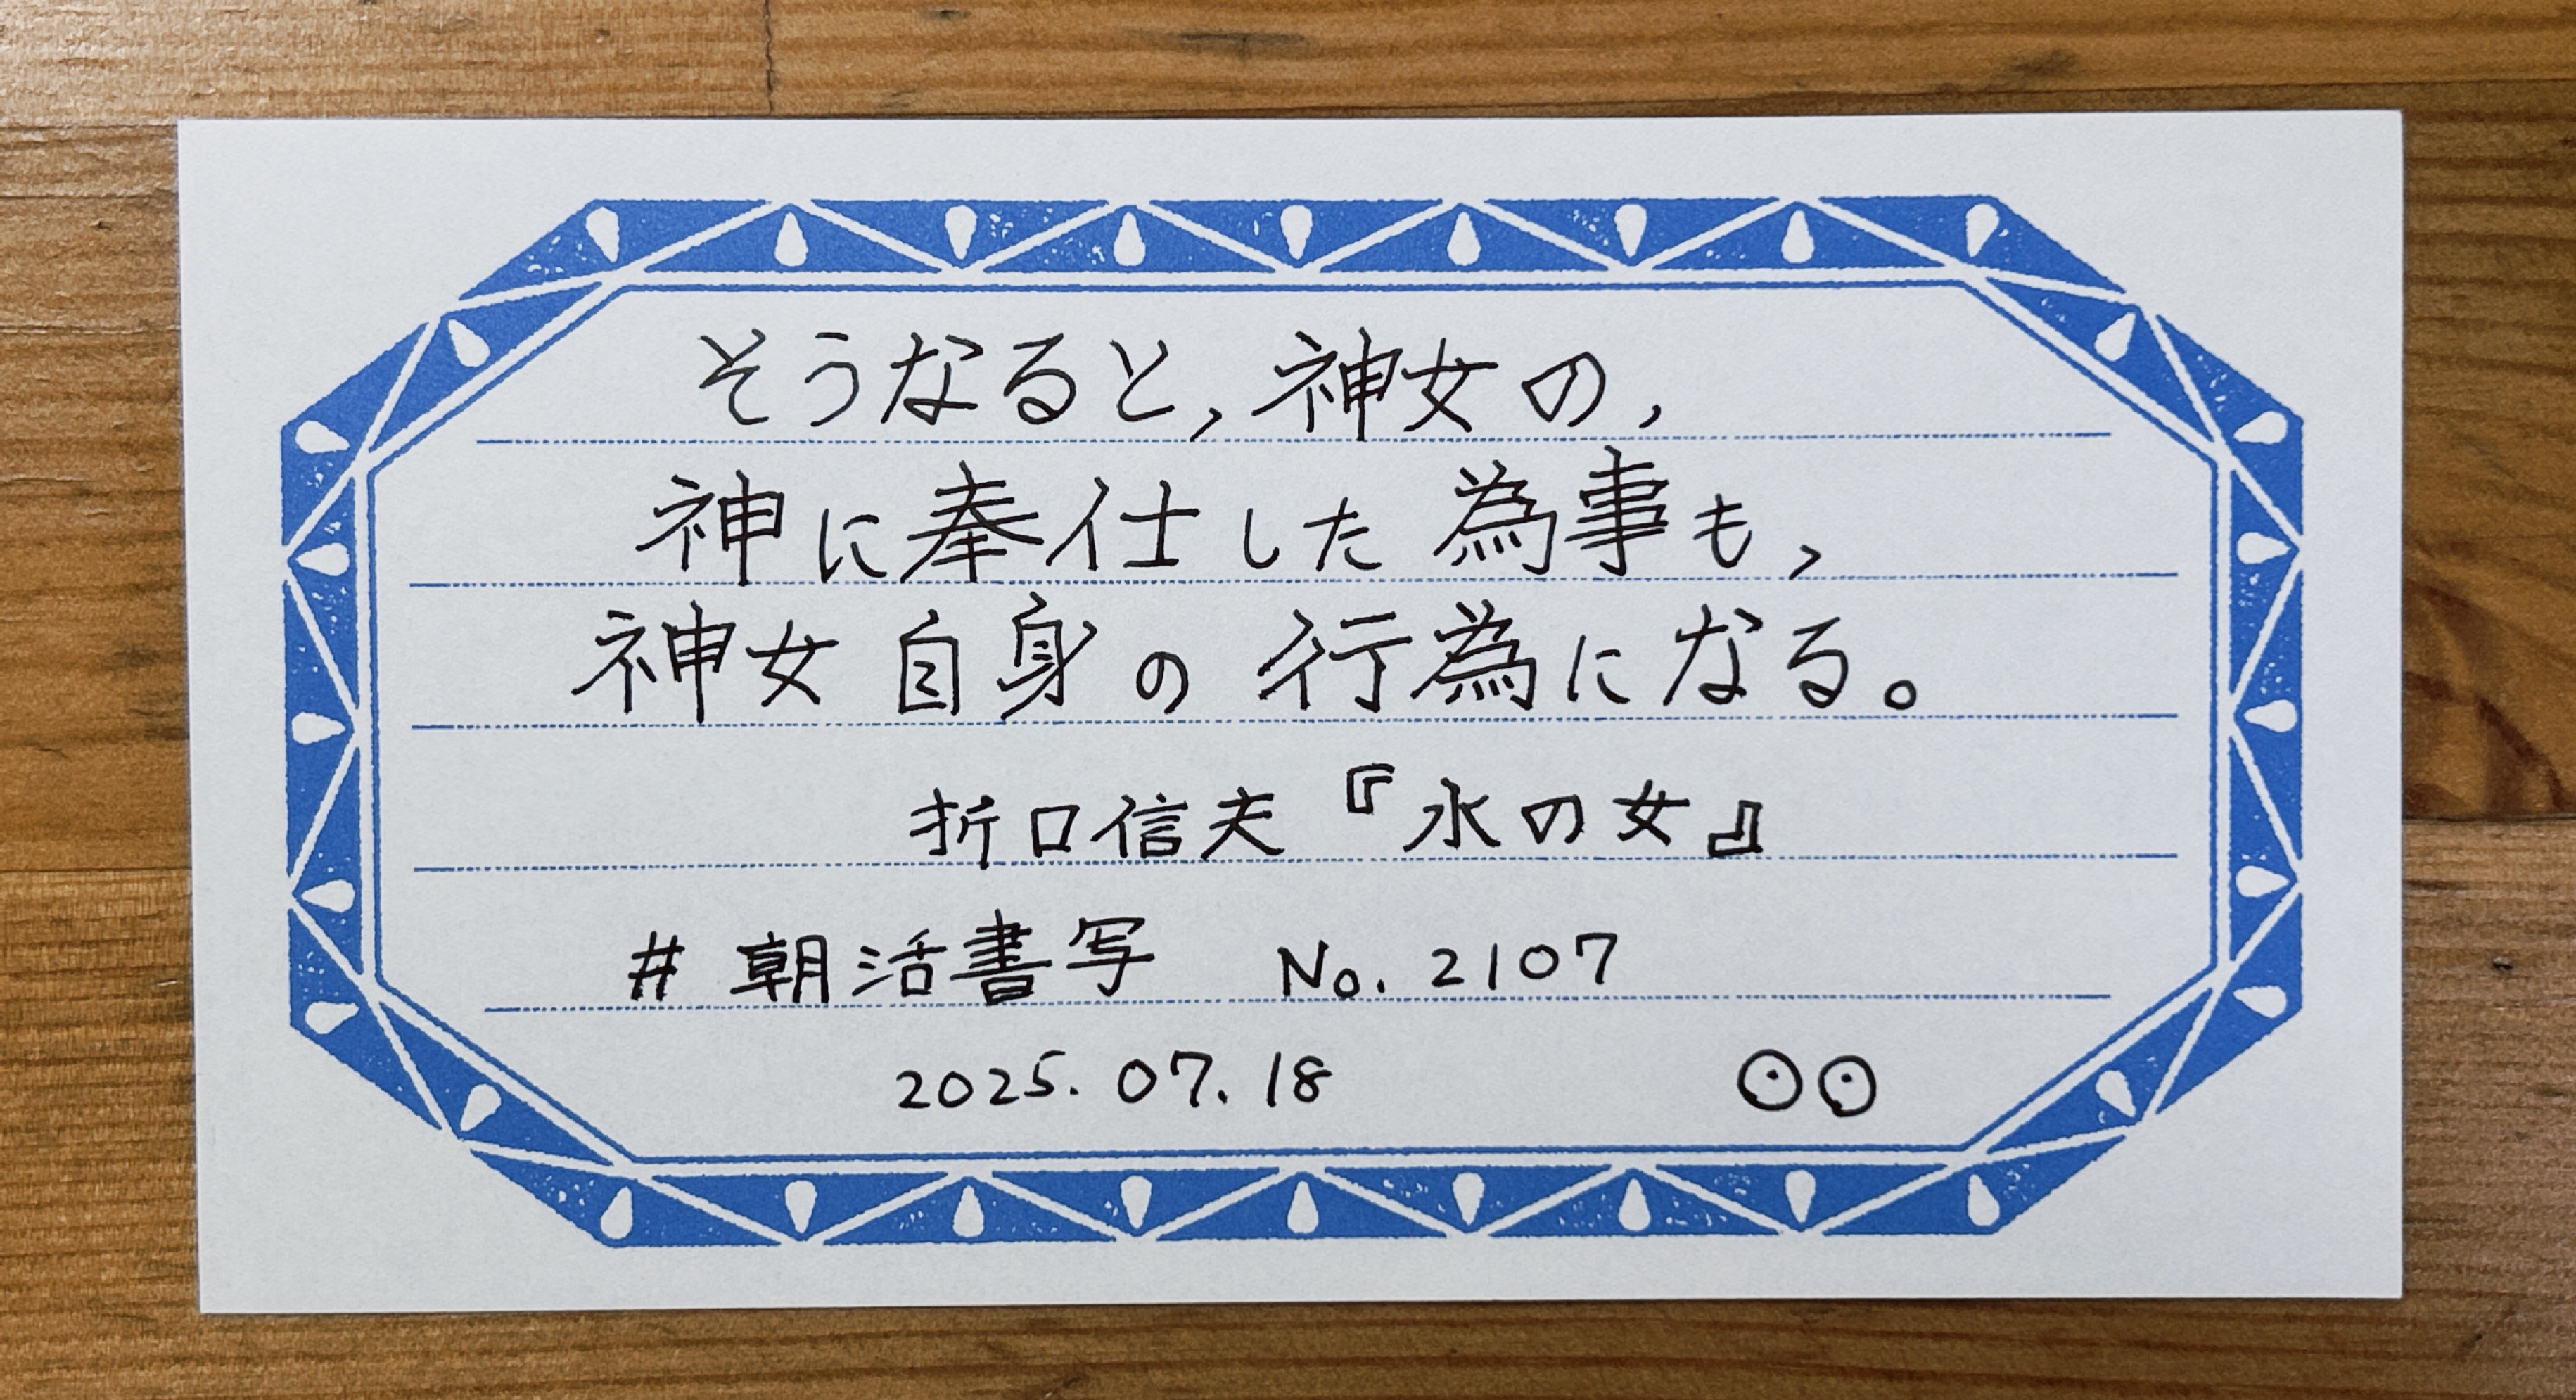 そうなると,神女の,
神に奉仕した為事も,
神女自身の行為になる。
折口信夫『水の女』
#朝活書写 No.2107
2025.07.18